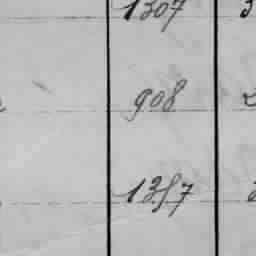 1307
908
1357